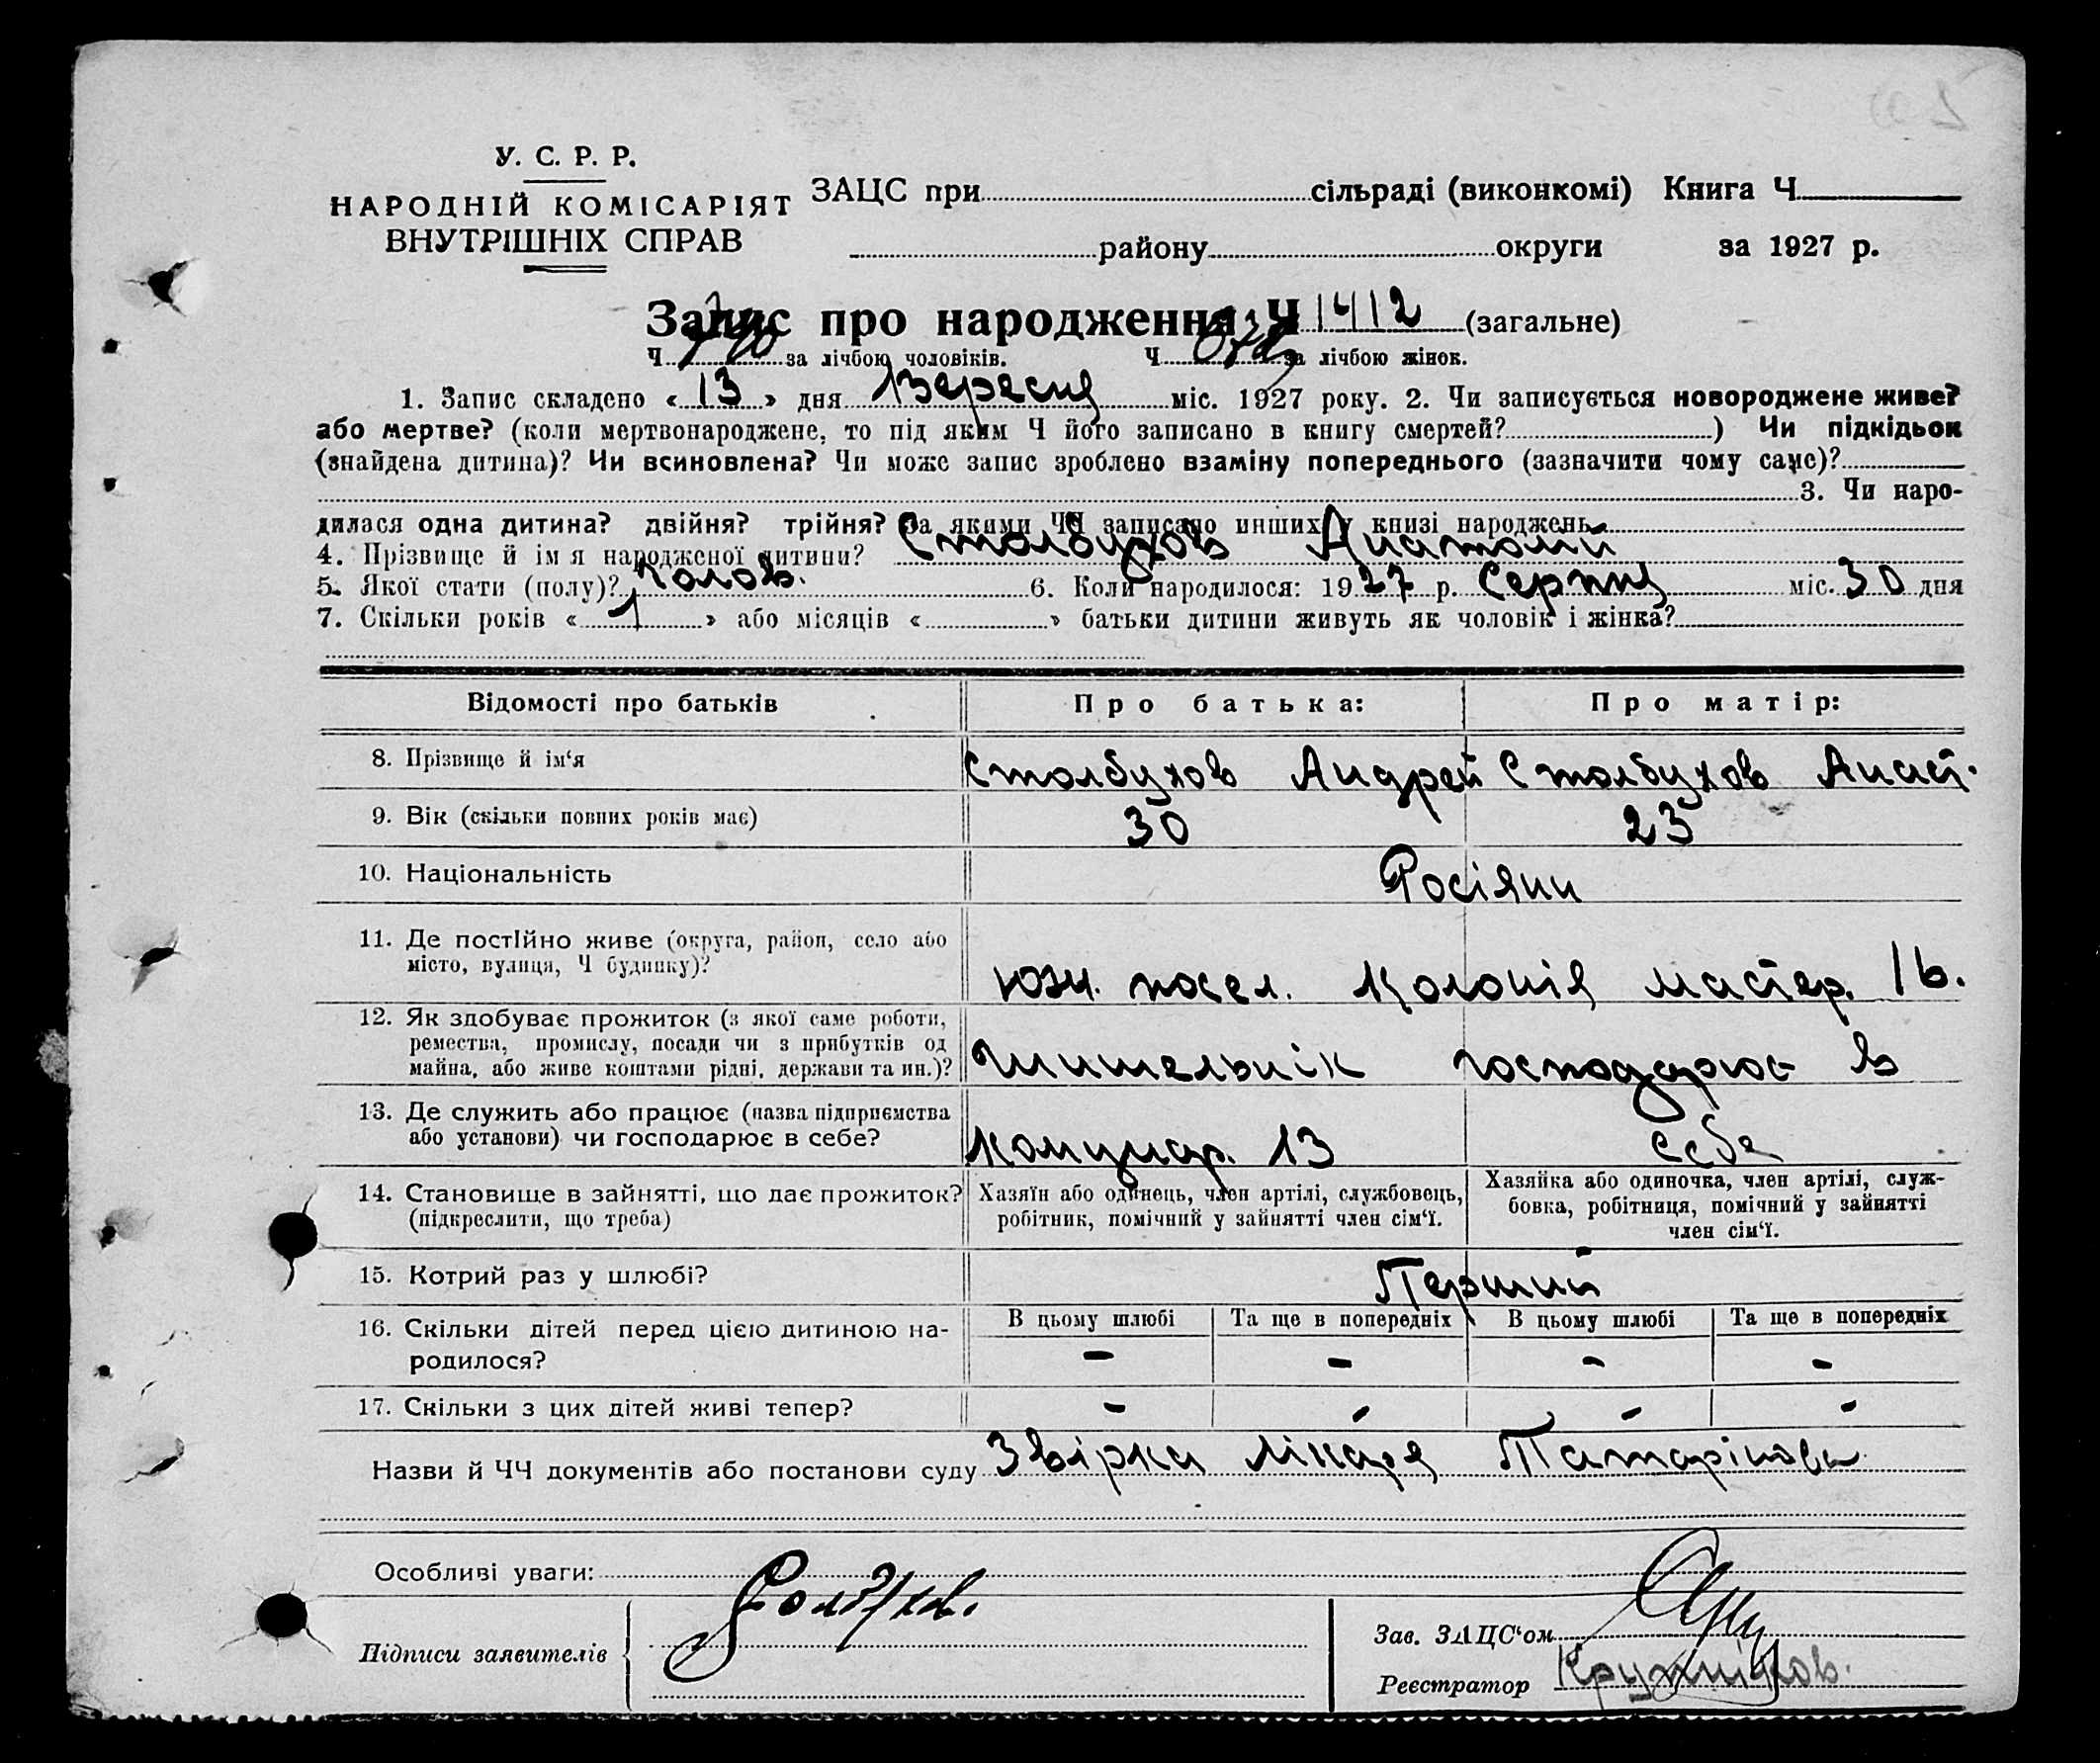 У. С. Р. Р.
НАРОДНІЙ КОМІСАРІЯТ
ВНУТРІШНІХ СПРАВ
ЗАЦС при сільраді (виконкомі) Книга Ч
району округи за 1927 р.
Запис про народження Ч 1412 (загальне)
Ч за лічбою чоловіків. Ч за лічбою жінок.
1. Запис складено « 13 » дня Вересня міс. 1927 року. 2. Чи записується новороджене живе?
або мертве? (коли мертвонароджене, то під яким Ч його записано в книгу смертей? ) Чи підкідьок
(знайдена дитина)? Чи всиновлена? Чи може запис зроблено взаміну попереднього (зазначити чому саме)?
3. Чи наро-
дилася одна дитина? двійня? трійня? За якими ЧЧ записано инших у книзі народжень
4. Прізвище й ім я народженої дитини? Столбухов Анатолій
5. Якої стати (полу)? Чолов. 6. Коли народилося: 1927 р. Серпня міс. 30 дня
7. Скільки років « 1 » або місяців « » батьки дитини живуть як чоловік і жінка?
Відомості про батьків Про батька: Про матір:
8. Прізвище й ім‘я Столбухов Андрей Столбухов Анаст.
9. Вік (скільки повних років має) 30 23
10. Національність Росіяни
11. Де постійно живе (округа, район, село або
місто, вулиця, Ч будинку)? Южн. посел. Колонія мастер. 16.
12. Як здобуває прожиток (з якої саме роботи,
ремества, промислу, посади чи з прибутків од
майна, або живе коштами рідні, держави та ин.)? господарює в
13. Де служить або працює (назва підприємства
або установи) чи господарює в себе? Комунар. 13 себе
14. Становище в зайнятті, що дає прожиток?
(підкреслити, що треба)
Хазяїн або одинець, член артілі, службовець,
робітник, помічний у зайнятті член сім‘ї.
Хазяйка або одиночка, член артілі, служ-
бовка, робітниця, помічний у зайнятті
член сім‘ї.
15. Котрий раз у шлюбі? Перший
16. Скільки дітей перед цією дитиною на-
родилося?
В цьому шлюбі Та ще в попередніх В цьому шлюбі Та ще в попередніх
- - - -
17. Скільки з цих дітей живі тепер? - - - -
Назви й ЧЧ документів або постанови суду Звірка лікаря Татарінова
Особливі уваги:
Підписи заявителів
Зав. ЗАЦС‘ом
Реєстратор